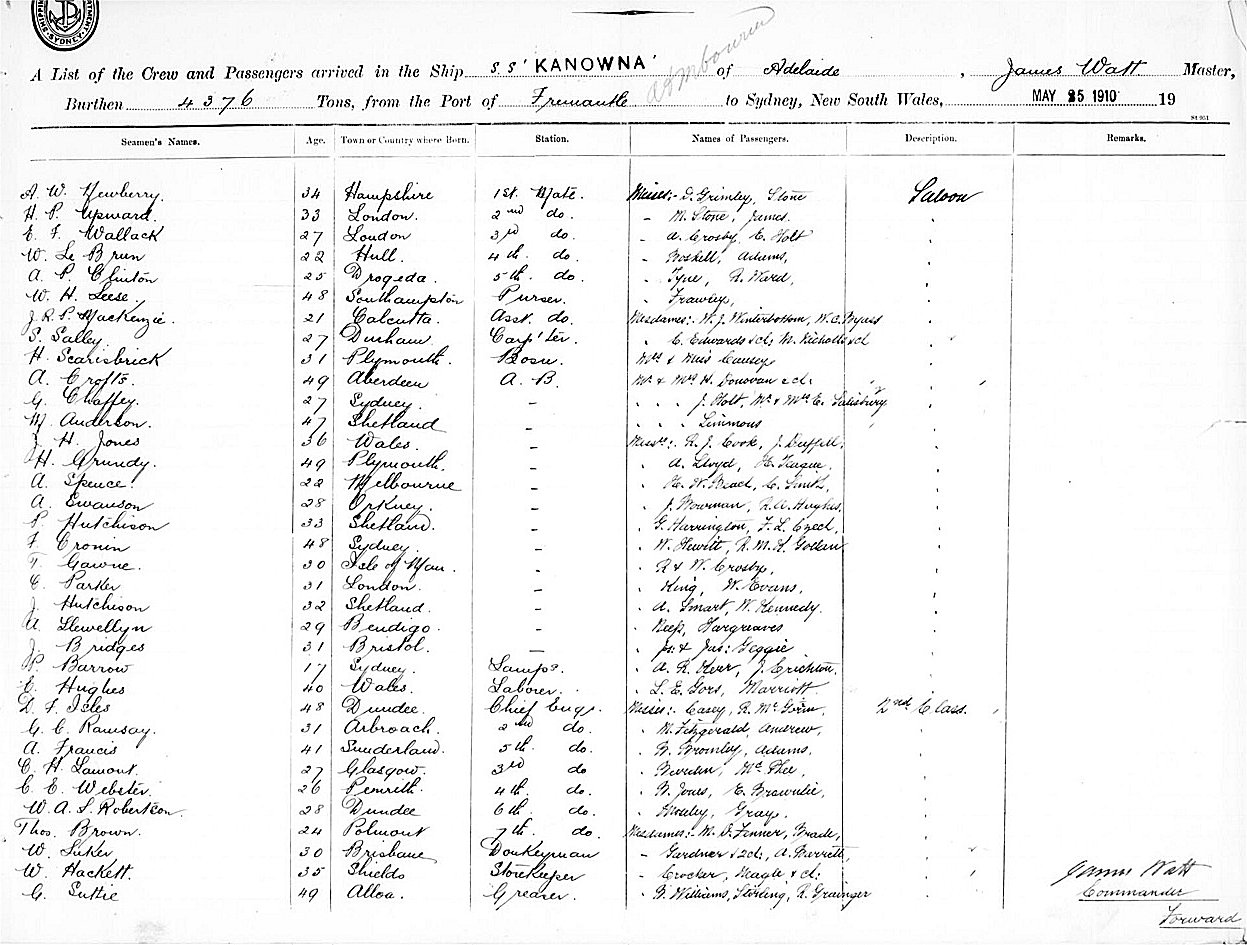 SYDNEY
A List of the Crew and Passengers arrived in the Ship S.S 'KANOWNA' of Adelaide, James Watt Master,
Burthen 4376 Tons, from the Port of Fremantle to Sydney, New South Wales, MAY 25 1910 19
Seamen's Names. Age. Town or Country where Born. Station. Names of Passengers. Description. Remarks.
A. W. Newberry. 34 Hampshire 1st. Mate. Misses:- D. Grimley, Stone Saloon
H. P. Upward. 33 London. 2nd do. - M. Stone, James.
E. F. Wallack 27 London 3rd do. - A. Crosby, E. Holt
W. Le Brun 22 Hull. 4th do. - Roskell, Adams,
A. P. Clinton 25 Drogeda. 5th do. - Tyne, R. Ward,
W. H. Leese. 48 Southampton Purser. - Frawley,
J. R. P. Mackenzie. 21 Calcutta. Asst. do. Mesdames:- W. J. Winterbottom, W. C. Byass
S. Salley. 27 Durham. Carp'ter. - E. Edwards & cl, M. Nicholls & cl
H. Scarisbrick 31 Plymouth. Bosn. Mrs & Miss Causey
A. Crofts. 49 Aberdeen A. B. Mr & Mrs H. Donovan & cl:
G. Chaffey. 27 Sydney. - J. Holt, Mr & Mrs E. Salisbury
M. Anderson. 47 Shetland - Simmons
J. H. Jones 36 Wales. - Messrs:- R. J. Cook, J. Duffell,
H. Grundy. 49 Plymouth. - A. Lloyd, H. Teague,
A. Spence. 22 Melbourne - H. W. Beach, C. Smith,
A. Swanson 28 Orkney. - J. Bowman, R. A. Hughes,
P. Hutchison 33 Shetland. - G. Harrington, F. L. Czech,
F. Cronin 48 Sydney. - W. Hewitt, R. M. K. Gollan,
T. Gawne. 30 Isle of Man. - R & W. Crosby,
C. Parker 31 London. - King, W. Evans,
J. Hutchison 32 Shetland. - A. Smart, W. Kennedy.
A. Llewellyn 29 Bendigo. - Keep, Hargreaves
J. Bridges 31 Bristol. - Js: & Jas: Geggie
P. Barrow 17 Sydney. Lamps. A. R. Kerr, J. Crichton.
E. Hughes 40 Wales. Laborer. L. E. Gors, Marriott.
D. F. Isles 48 Dundee. Chief Engr. Misses:- Casey, R. McGovern, 2nd Class.
G. C. Ramsay. 31 Arbroach. 2nd do. - M. Fitzgerald, Andrew,
A. Francis 41 Sunderland. 5th do. - B. Bromley, Adams,
C. H. Lamont. 27 Glasgow. 3rd do - McPhee,
C. E. Webster. 26 Penrith. 4th do. - B. Jones, E. Brownlie,
W. A. S. Robertson. 28 Dundee 6th do. - Moseley, Gray.
Thos. Brown. 24 Polmont 7th. do. Mesdames:- M. D. Fenner, Brade,
W. Suker 30 Brisbane Donkeyman - Gardner & 2cl:, A. Barrett,
W. Hackett. 35 Shields Storekeeper - Crocker, Neagle & cl: James Watt
G. Suttie 49 Alloa. Greaser. - B. Williams, Stirling, R. Grainger Commander
Forward